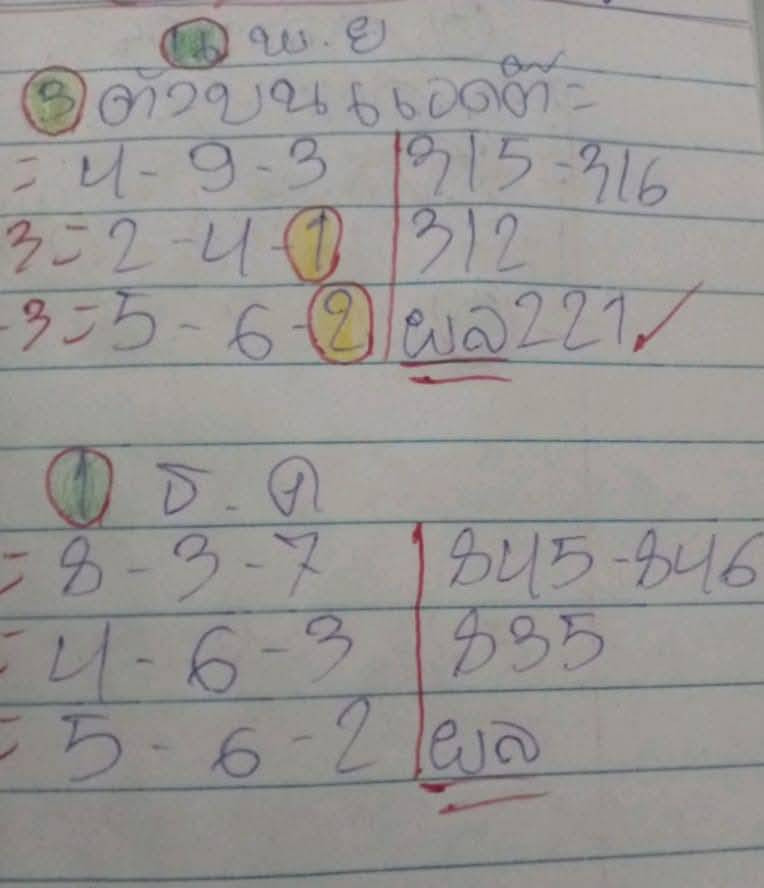 16 พ.ย
3 ตัวบน
= 4-9-3 315-316
3=2-4-1 312
-3=5-6-2 ผล221
1 ธ.ค
= 8-3-7 845-846
= 4-6-3 835
= 5-6-2 ผล